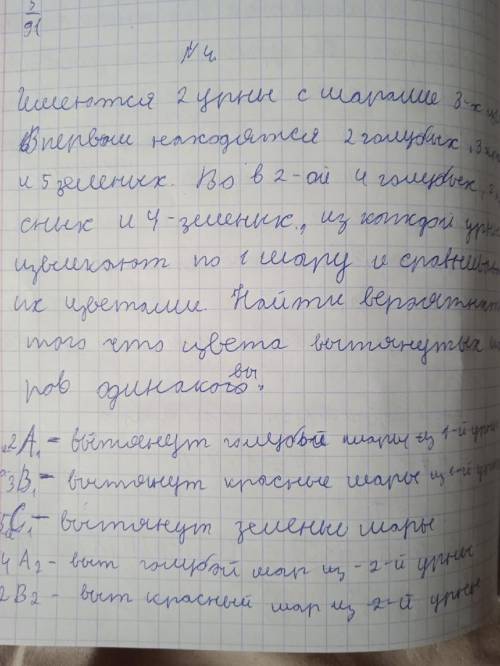 3
91
N 4.
Имеются 2 урны с шарами 3-х
В первой находятся 2 голубых, 3
и 5 зеленых. Во в 2-ой 4 голубых,
сных и 4-зеленых., из каждой
извлекают по 1 шару и
их цветами. Найти
того что цвета вытянутых
ров одинаковы.
2A1 - вытянут голубой шары из 1-й
3B1 - вытянут красные шары из 1-й
5C1 - вытянут зеленые шары
4A2 - выт голубой шар из - 2-й урны
2B2 - выт красный шар из 2-й урны